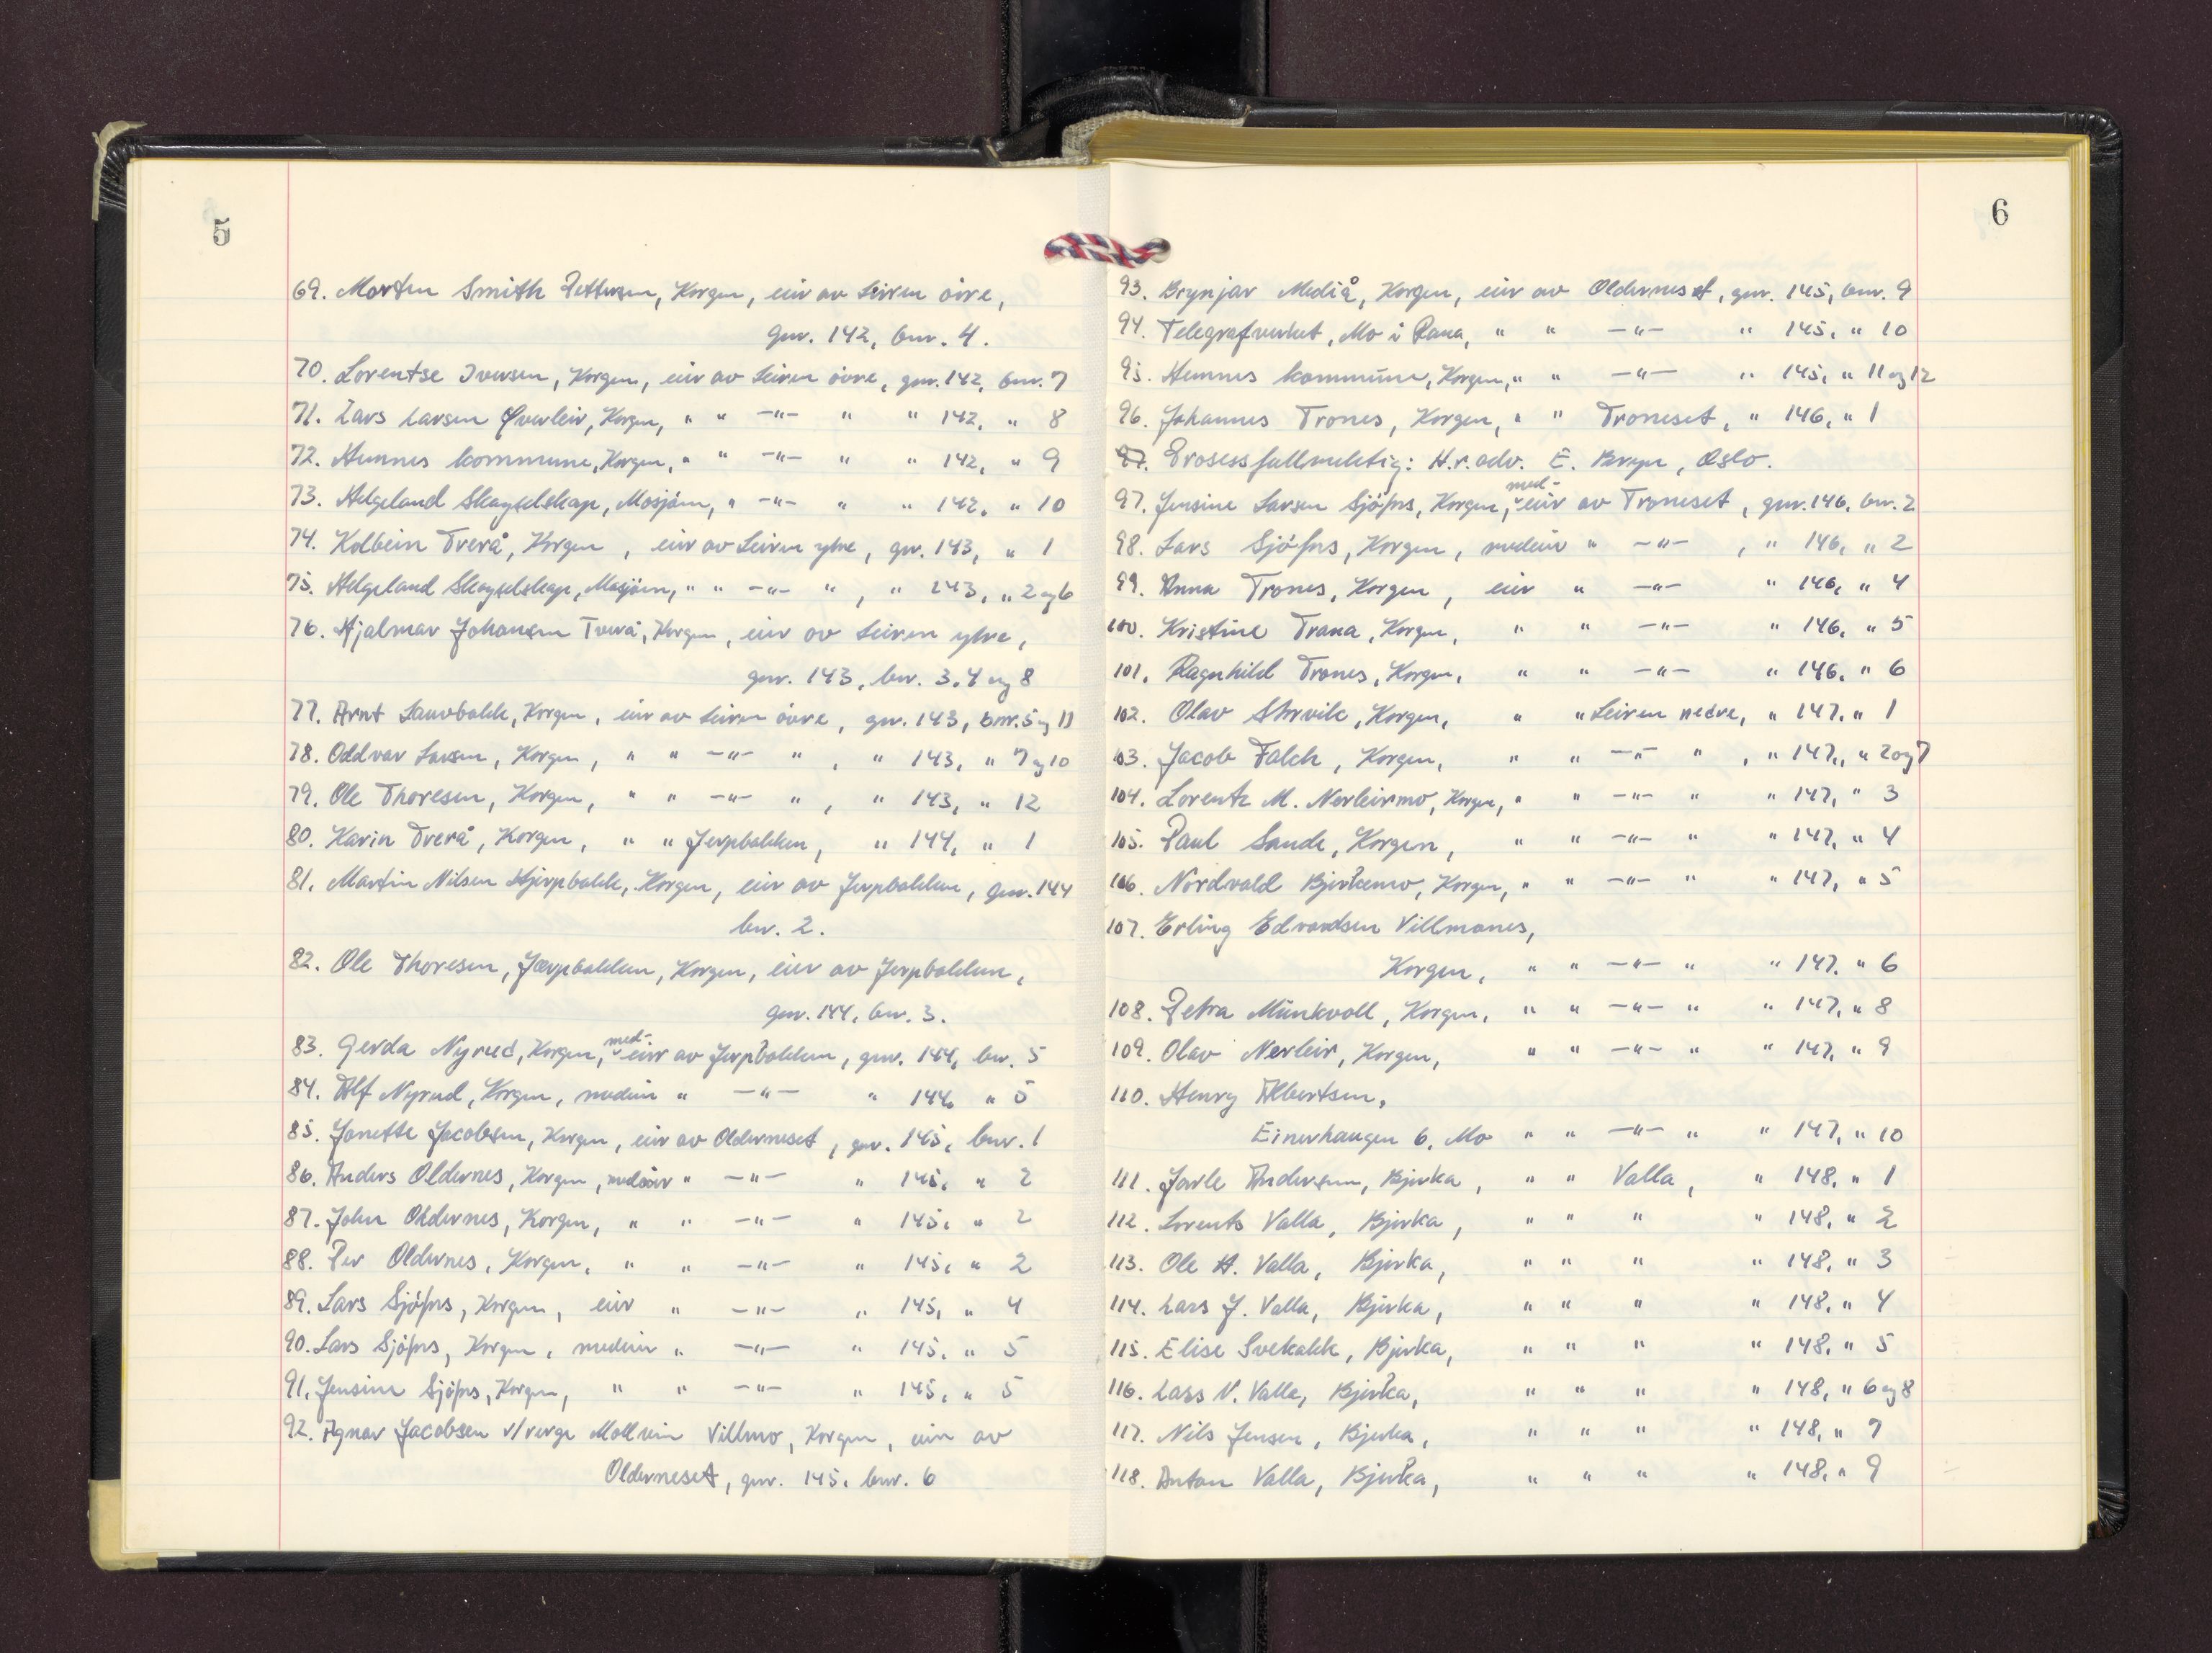 5
69. Morten Smith Pettersen, Korgen, eier av Leiren övre,
gnr. 142, bnr. 4.
70. Lorentse Iversen, Korgen, eier av Leiren övre, gnr. 142, bnr. 7
71. Lars Larsen Øverleir, Korgen, " " -"- " " 142, " 8
72. Hemnes kommune, Korgen, " " -"- " " 142, " 9
73. Helgeland Skogselskap, Mosjöen, " -"- " " 142, " 10
74. Kolbein Tverå, Korgen, eier av Leiren ytre, gnr. 143, " 1
75. Helgeland Skogselskap, Mosjöen, " " -"- " , " 143, " 2 og 6
76. Hjalmar Johansen Tverå, Korgen, eier av Leiren ytre,
gnr. 143, bnr. 3, 4 og 8
77. Arnt Lauvbakk, Korgen, eier av Leiren övre, gnr. 143, bnr. 5 og 11
78. Oddvar Larsen, Korgen, " " -"- " , " 143, " 7 og 10
79. Ole Thoresen, Korgen, " " -"- " , " 143, " 12
80. Karin Tverå, Korgen, " " Jerpbakken, " 144, " 1
81. Martin Nilsen Hjerpbakk, Korgen, eier av Jerpbakken, gnr. 144
bnr. 2.
82. Ole Thoresen, Jærpbakken, Korgen, eier av Jerpbakken,
gnr. 144, bnr. 3.
83. Gerda Nyrud, Korgen, med-eier av Jerpbakken, gnr. 144, bnr. 5
84. Alf Nyrud, Korgen, medeier " -"- " 144, " 5
85. Janette Jacobsen, Korgen, eier av Olderneset, gnr. 145, bnr. 1
86. Anders Oldernes, Korgen, medeier " -"- " 145, " 2
87. John Oldernes, Korgen, " " -"- " 145, " 2
88. Per Oldernes, Korgen, " " -"- " 145, " 2
89. Lars Sjöfors, Korgen, eier " -"- " 145, " 4
90. Lars Sjöfors, Korgen, medeier " -"- " 145, " 5
91. Jensine Sjöfors, Korgen, " " -"- " 145, " 5
92. Agnar Jacobsen v/verge Villmo, Korgen, eier av
Olderneset, gnr. 145, bnr. 6
6
93. Brynjar Mediå, Korgen, eier av Olderneset, gnr. 145, bnr. 9
94. Telegrafverket, Mo i Rana, " " -"- " 145, " 10
95. Hemnes kommune, Korgen, " " -"- " 145, " 11 og 12
96. Johannes Trones, Korgen, " " Troneset, " 146, " 1
97. Prosessfullmektig: H.r.adv. E. Bryn, Oslo.
97. Jensine Larsen Sjöfors, Korgen, med-eier av Troneset, gnr. 146, bnr. 2
98. Lars Sjöfors, Korgen, medeier " -"- , " 146, " 2
99. Anna Trones, Korgen, eier " -"- " 146, " 4
100. Kristine Trana, Korgen, " " -"- " 146, " 5
101. Ragnhild Trones, Korgen, " " -"- " 146, " 6
102. Olav Storvik, Korgen, " " Leiren nedre, " 147, " 1
103. Jacob Falch, Korgen, " " -"- " , " 147, " 2 og 7
104. Lorentz M. Nerleirmo, Korgen, " " -"- " " 147, " 3
105. Paul Sande, Korgen, " " -"- " " 147, " 4
106. Nordvald Bjerkemo, Korgen, " " -"- " " 147, " 5
107. Erling Edvardsen Villmones,
Korgen, " " -"- " " 147, " 6
108. Petra Munkvoll, Korgen, " " -"- " " 147, " 8
109. Olav Nerleir, Korgen, " " -"- " " 147, " 9
110. Henry Albertsen,
Einerhaugen 6, Mo " " -"- " " 147, " 10
111. Jarle Andersen, Bjerka, " " Valla, " 148, " 1
112. Lorents Valla, Bjerka, " " " " 148, " 2
113. Ole H. Valla, Bjerka, " " " " 148, " 3
114. Lars J. Valla, Bjerka, " " " " 148, " 4
115. Elise Svekakk, Bjerka, " " " " 148, " 5
116. Lars N. Valla, Bjerka, " " " " 148, " 6 og 8
117. Nils Jensen, Bjerka, " " " " 148, " 7
118. Anton Valla, Bjerka, " " " " 148, " 9